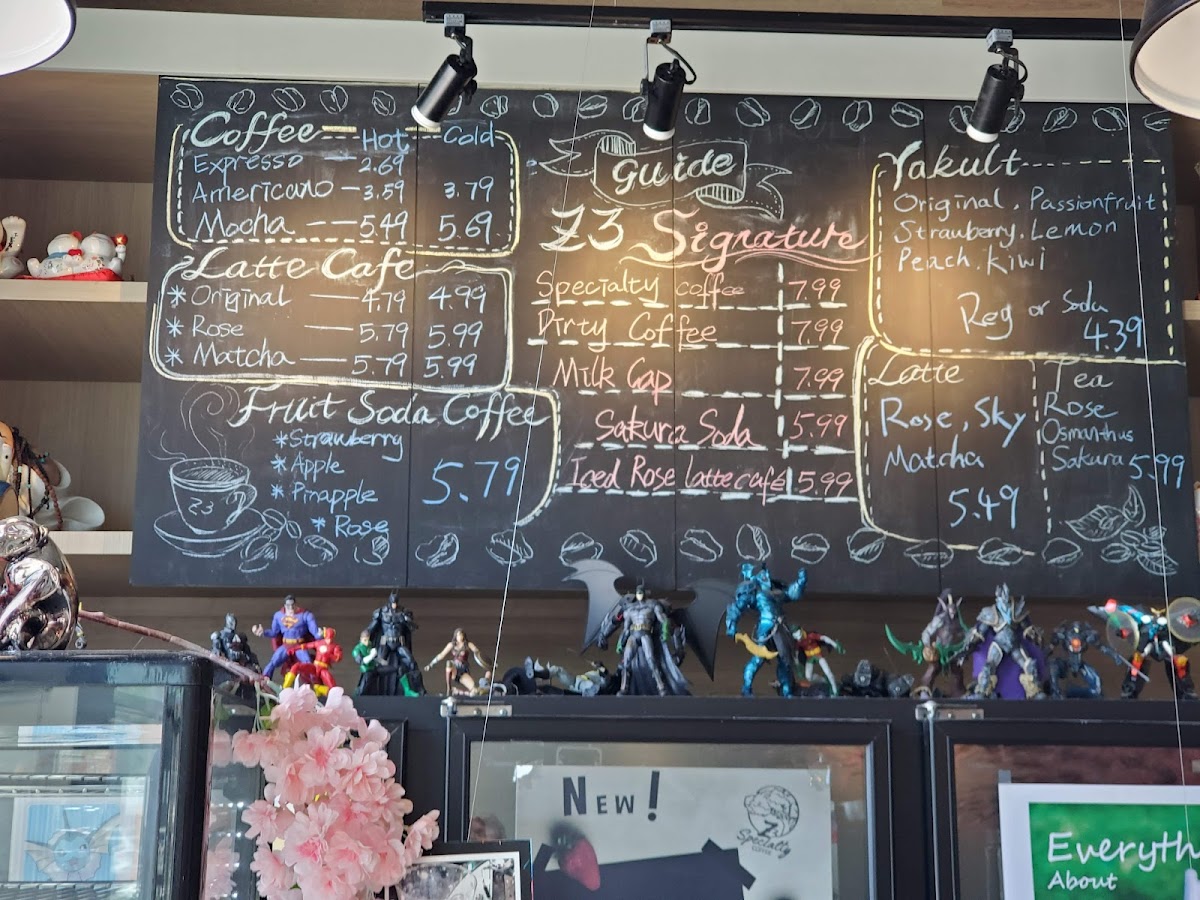 Coffee Hot Cold
Expresso 2.69
Americano 3.59 3.79
Mocha 5.49 5.69
Latte Cafe
* Original 4.79 4.99
* Rose 5.79 5.99
* Matcha 5.79 5.99
Fruit Soda Coffee
* Strawberry
* Apple
* Pinapple
* Rose
5.79
Z3
Guide
Z3 Signature
Specialty coffee 7.99
Dirty Coffee 7.99
Milk Cap 7.99
Sakura Soda 5.99
Iced Rose latte cafe 5.99
Yakult
Original, Passionfruit
Strawberry, Lemon
Peach, Kiwi
Reg or Soda
4.39
Latte
Rose, Sky
Matcha
5.49
Tea
Rose
Osmanthus
Sakura 5.99
New!
Z
Specialty
COFFEE
Everyth
About